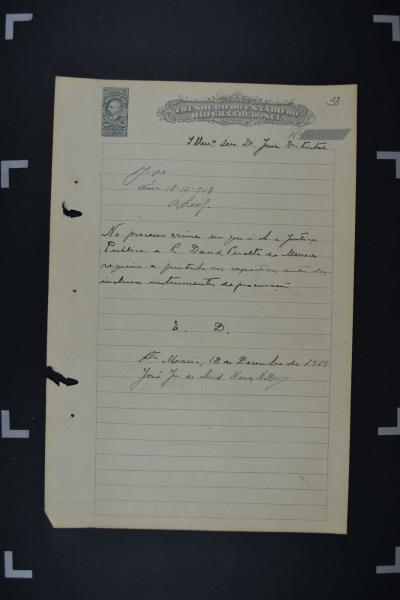 THESOURO DO ESTADO DO
RIO GRANDE DO SUL
53
Illmo Snr. Dr. Juiz Districtal
J. se
Em 18-12-919
No processo crime em que é A. a Justiça
Publica e R. David Peralta de Menezes
requeiro a juntada aos respectivos autos dos
inclusos instrumentos de procuração.
E. D.
Sta Maria, 18 de Dezembro de 1919.
José